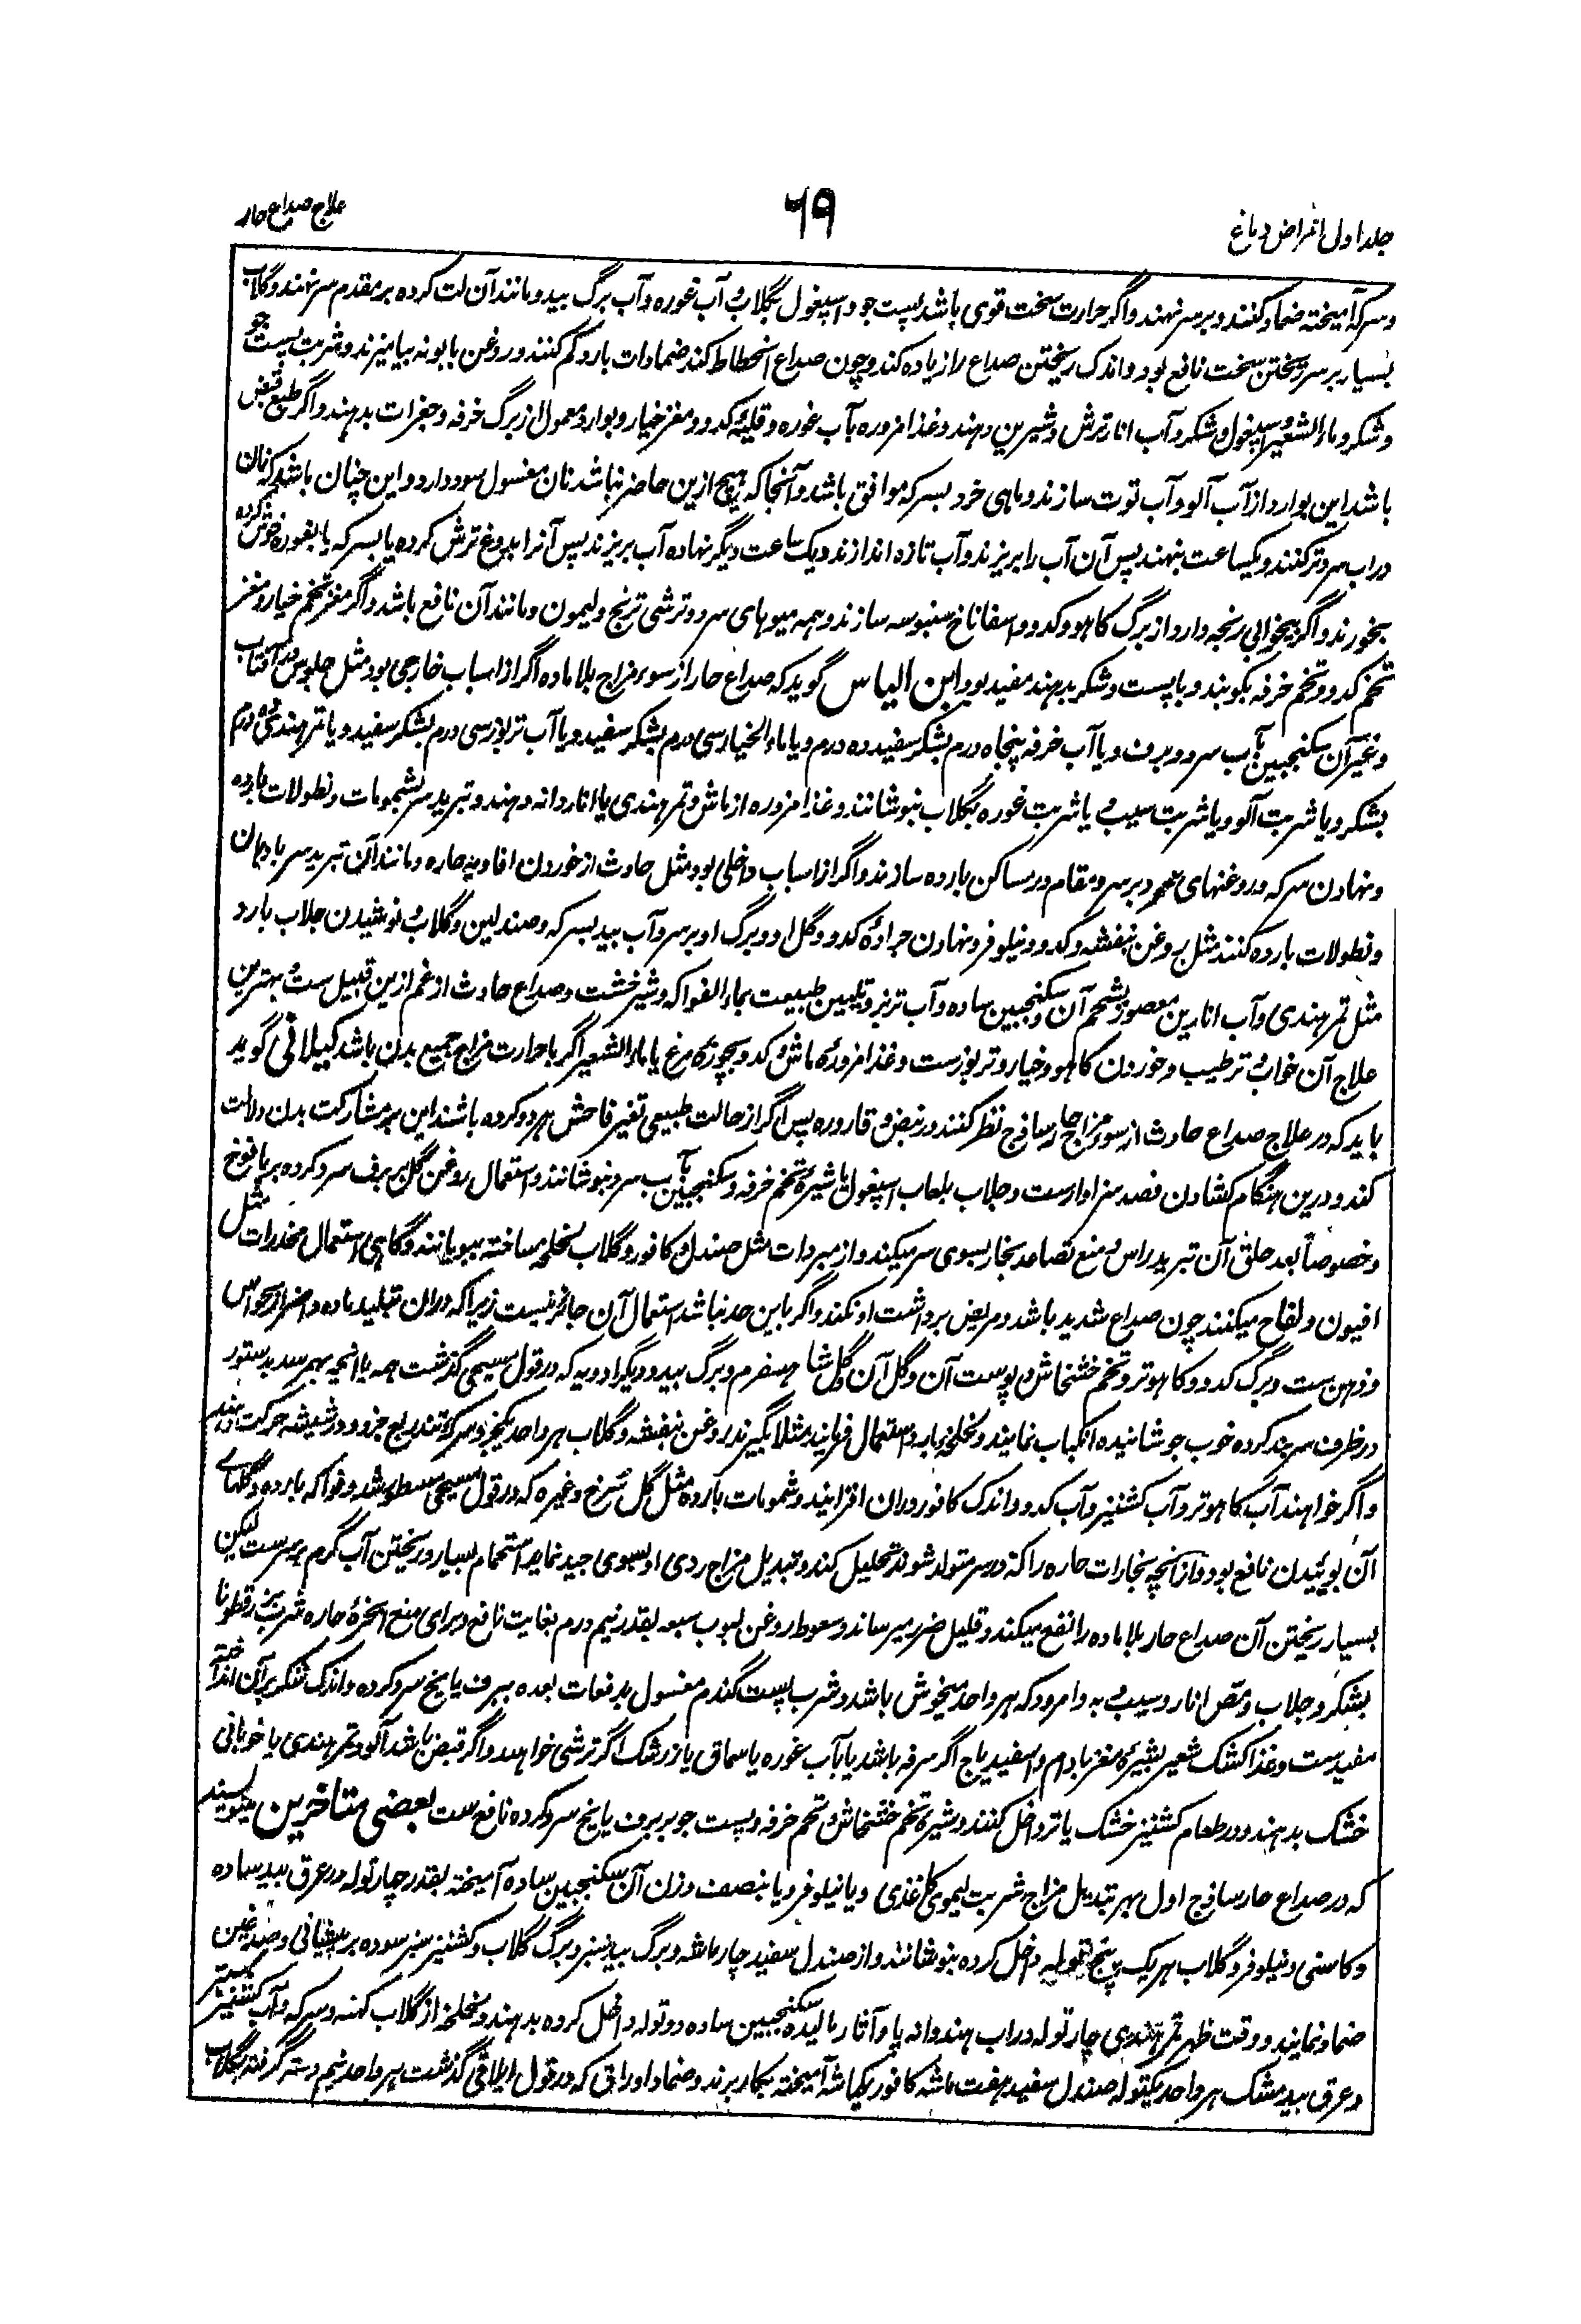 جلد اول امراض دماغ
۶۹
علاج صداع حار
و سرکه آمیخته ضماد کنند و بر سر نهند و اگر حرارت سخت قوی باشد پست جو و اسپغول بگلاب و آب غوره و آب برگ بید و مانند آن لت کرده بر مقدم سر نهند و گلاب
بسیار بر سر ریختن سخت نافع بود و اندک ریختن صداع را زیاده کند و چون صداع انحطاط کند ضمادات بارد کم کنند و روغن بابونه بیامیزند و شربت پست جو
و شکر و ماء الشعیر و اسپغول و شکر و آب انار ترش و شیرین دهند و غذا مزوره بآب غوره و قلیهٔ کدو و مغز خیار و بوارد معمول از برگ خرفه و جغرات بدهند و اگر طبع قبض
باشد این بوارد از آب آلو و آب توت سازند و ماهی خرد بسرکه موافق باشد و آنجا که هیچ ازین حاضر نباشد نان مغسول سود دارد و این چنان باشد که نان
در آب سرد تر کنند و یکساعت بنهند پس آن آب را بریزند و آب تازه اندازند و یک ساعت دیگر نهاده آب بریزند پس آنرا بدوغ ترش کرده یا بسرکه یا بغوره خوش کرده
بخورند و اگر بیخوابی رنجه دارد از برگ کاهو و کدو و اسفاناخ سنبوسه سازند و همه میوهای سرد و ترشی ترنج و لیمون و مانند آن نافع باشد و اگر مغز تخم خیار و مغز
تخم کدو و تخم خرفه بکوبند و با پست و شکر بدهند مفید بود ابن الیاس گوید که صداع حار از سوء مزاج بلا ماده اگر از اسباب خارجی بود مثل جلوس در آفتاب
و غیر آن سکنجبین بآب سرد و برف و یا آب خرفه پنجاه درم بشکر سفید ده درم و یا ماء الخیار سی درم بشکر سفید و یا آب تربوز سی درم بشکر سفید و یا تمر هندی ده درم
بشکر و یا شربت آلو و یا شربت سیب و یا شربت غوره بگلاب بنوشانند و غذا مزوره از ماش و تمر هندی یا اناردانه دهند و تبرید سر بشمومات و نطولات بارده
و نهادن سرکه و روغنهای سرد بر سر و مقام در مساکن بارده سازند و اگر از اسباب داخلی بود مثل حادث از خوردن افاویه حاره و مانند آن تبرید سر بادهان
و نطولات بارده کنند مثل روغن بنفشه و کدو و نیلوفر و نهادن جرادهٔ کدو و گل او و برگ او بر سر و آب بید بسرکه و صندلین و گلاب و نوشیدن جلاب بارد
مثل تمر هندی و آب انارین معصور بشحم آن و سکنجبین ساده و آب تربز و تلیین طبیعت بماء الفواکه و شیرخشت و صداع حادث از غم ازین قبیل ست و بهترین
علاج آن خواب و ترطیب و خوردن کاهو و خیار و تربوزست و غذا مزورهٔ ماش و کدو و بچوزهٔ مرغ یا ماء الشعیر اگر با حرارت مزاج جمیع بدن باشد گیلانی گوید
باید که در علاج صداع حادث از سوء مزاج حار ساذج نظر کنند در نبض و قاروره پس اگر از حالت طبیعی تغیر فاحش هر دو کرده باشند این بر مشارکت بدن دلالت
کند و درین هنگام گشادن فصد سزاوارست و جلاب بلعاب اسپغول با شیرهٔ تخم خرفه و سکنجبین بآب سرد بنوشانند و استعمال روغن گل ببرف سرد کرده بر یافوخ
و خصوصاً بعد حلق آن تبرید راس و منع تصاعد بخار بسوی سر میکند و از مبردات مثل صندل و کافور و گلاب لخلخه ساخته ببویانند و گاهی استعمال مخدرات مثل
افیون و لفاح میکنند چون صداع شدید باشد و مریض برداشت او نکند و اگر باین حد نباشد استعمال آن جائز نیست زیرا که دران تبلید ماده و اضرار بحواس
و ذهن ست و برگ کدو و کاهو تر و تخم خشخاش و پوست آن و گل آن و گل شاهسفرم و برگ بید و دیگر ادویه که در قول مسیحی گذشت همه یا آنچه بهم رسد بدستور
در ظرف سر بند کرده خوب جوشانیده انکباب نمایند و لخلخهٔ بارد استعمال فرمایند مثلا بگیرند روغن بنفشه و گلاب هر واحد یکجزو سرکهٔ تند ربع جزو و در شیشه حرکت دهند
و اگر خواهند آب کاهو تر و آب کشنیز و آب کدو و اندک کافور دران افزایند و شمومات بارده مثل گل سرخ و غیره که در قول مسیحی مسطور شد و فواکه بارده و گلهای
آن بوئیدن نافع بود و از آنچه بخارات حاره را که در سر متولد شوند تحلیل کند و تبدیل مزاج ردی او بسوی جید نماید استحمام بسیار و ریختن آب گرم بر سرست لیکن
بسیار ریختن آن صداع حار بلا ماده را نفع میکند و قلیل ضرر میرساند و سعوط روغن لبوب سبعه بقدر نیم درم بغایت نافع و برای منع ابخرهٔ حاره شرب بزرقطونا
بشکر و جلاب و مص انار و سیب و به و امرود که هر واحد میخوش باشد و شرب پست گندم مغسول بدفعات بعده ببرف یا یخ سرد کرده و اندک شکر بران انداخته
مفیدست و غذا کشک شعیر بشیرهٔ مغز بادام و اسفیدباج اگر سرفه باشد یا بآب غوره یا سماق یا زرشک اگر ترشی خواهد و اگر قبض باشد آلو و تمر هندی یا خوبانی
خشک بدهند و در طعام کشنیز خشک یا تر داخل کنند و شیرهٔ تخم خشخاش و تخم خرفه و پست جو ببرف یا یخ سرد کرده نافع ست بعضی متاخرین مینویسند
که در صداع حار ساذج اول بهر تبدیل مزاج شربت لیموی کاغذی و یا نیلوفر و یا بنصف وزن آن سکنجبین ساده آمیخته بقدر چار توله در عرق بید ساده
و کاسنی و نیلوفر و گلاب هر یک پنج توله داخل کرده بنوشانند و از صندل سفید چار ماشه و برگ بید سبز و برگ گلاب و کشنیز سبز سوده بر پیشانی و صدغین
ضماد نمایند و وقت ظهر تمر هندی چار توله در آب هندوانه پاو آثار مالیده سکنجبین ساده دو توله داخل کرده بدهند و لخلخه از گلاب کهنه و سرکه و آب کشنیز سبز
و عرق بید مشک هر واحد یکتوله صندل سفید هفت ماشه کافور یکماشه آمیخته بکار برند و ضماد اوراقی که در قول ایلاقی گذشت هر واحد نیم دسته گرفته بگلاب